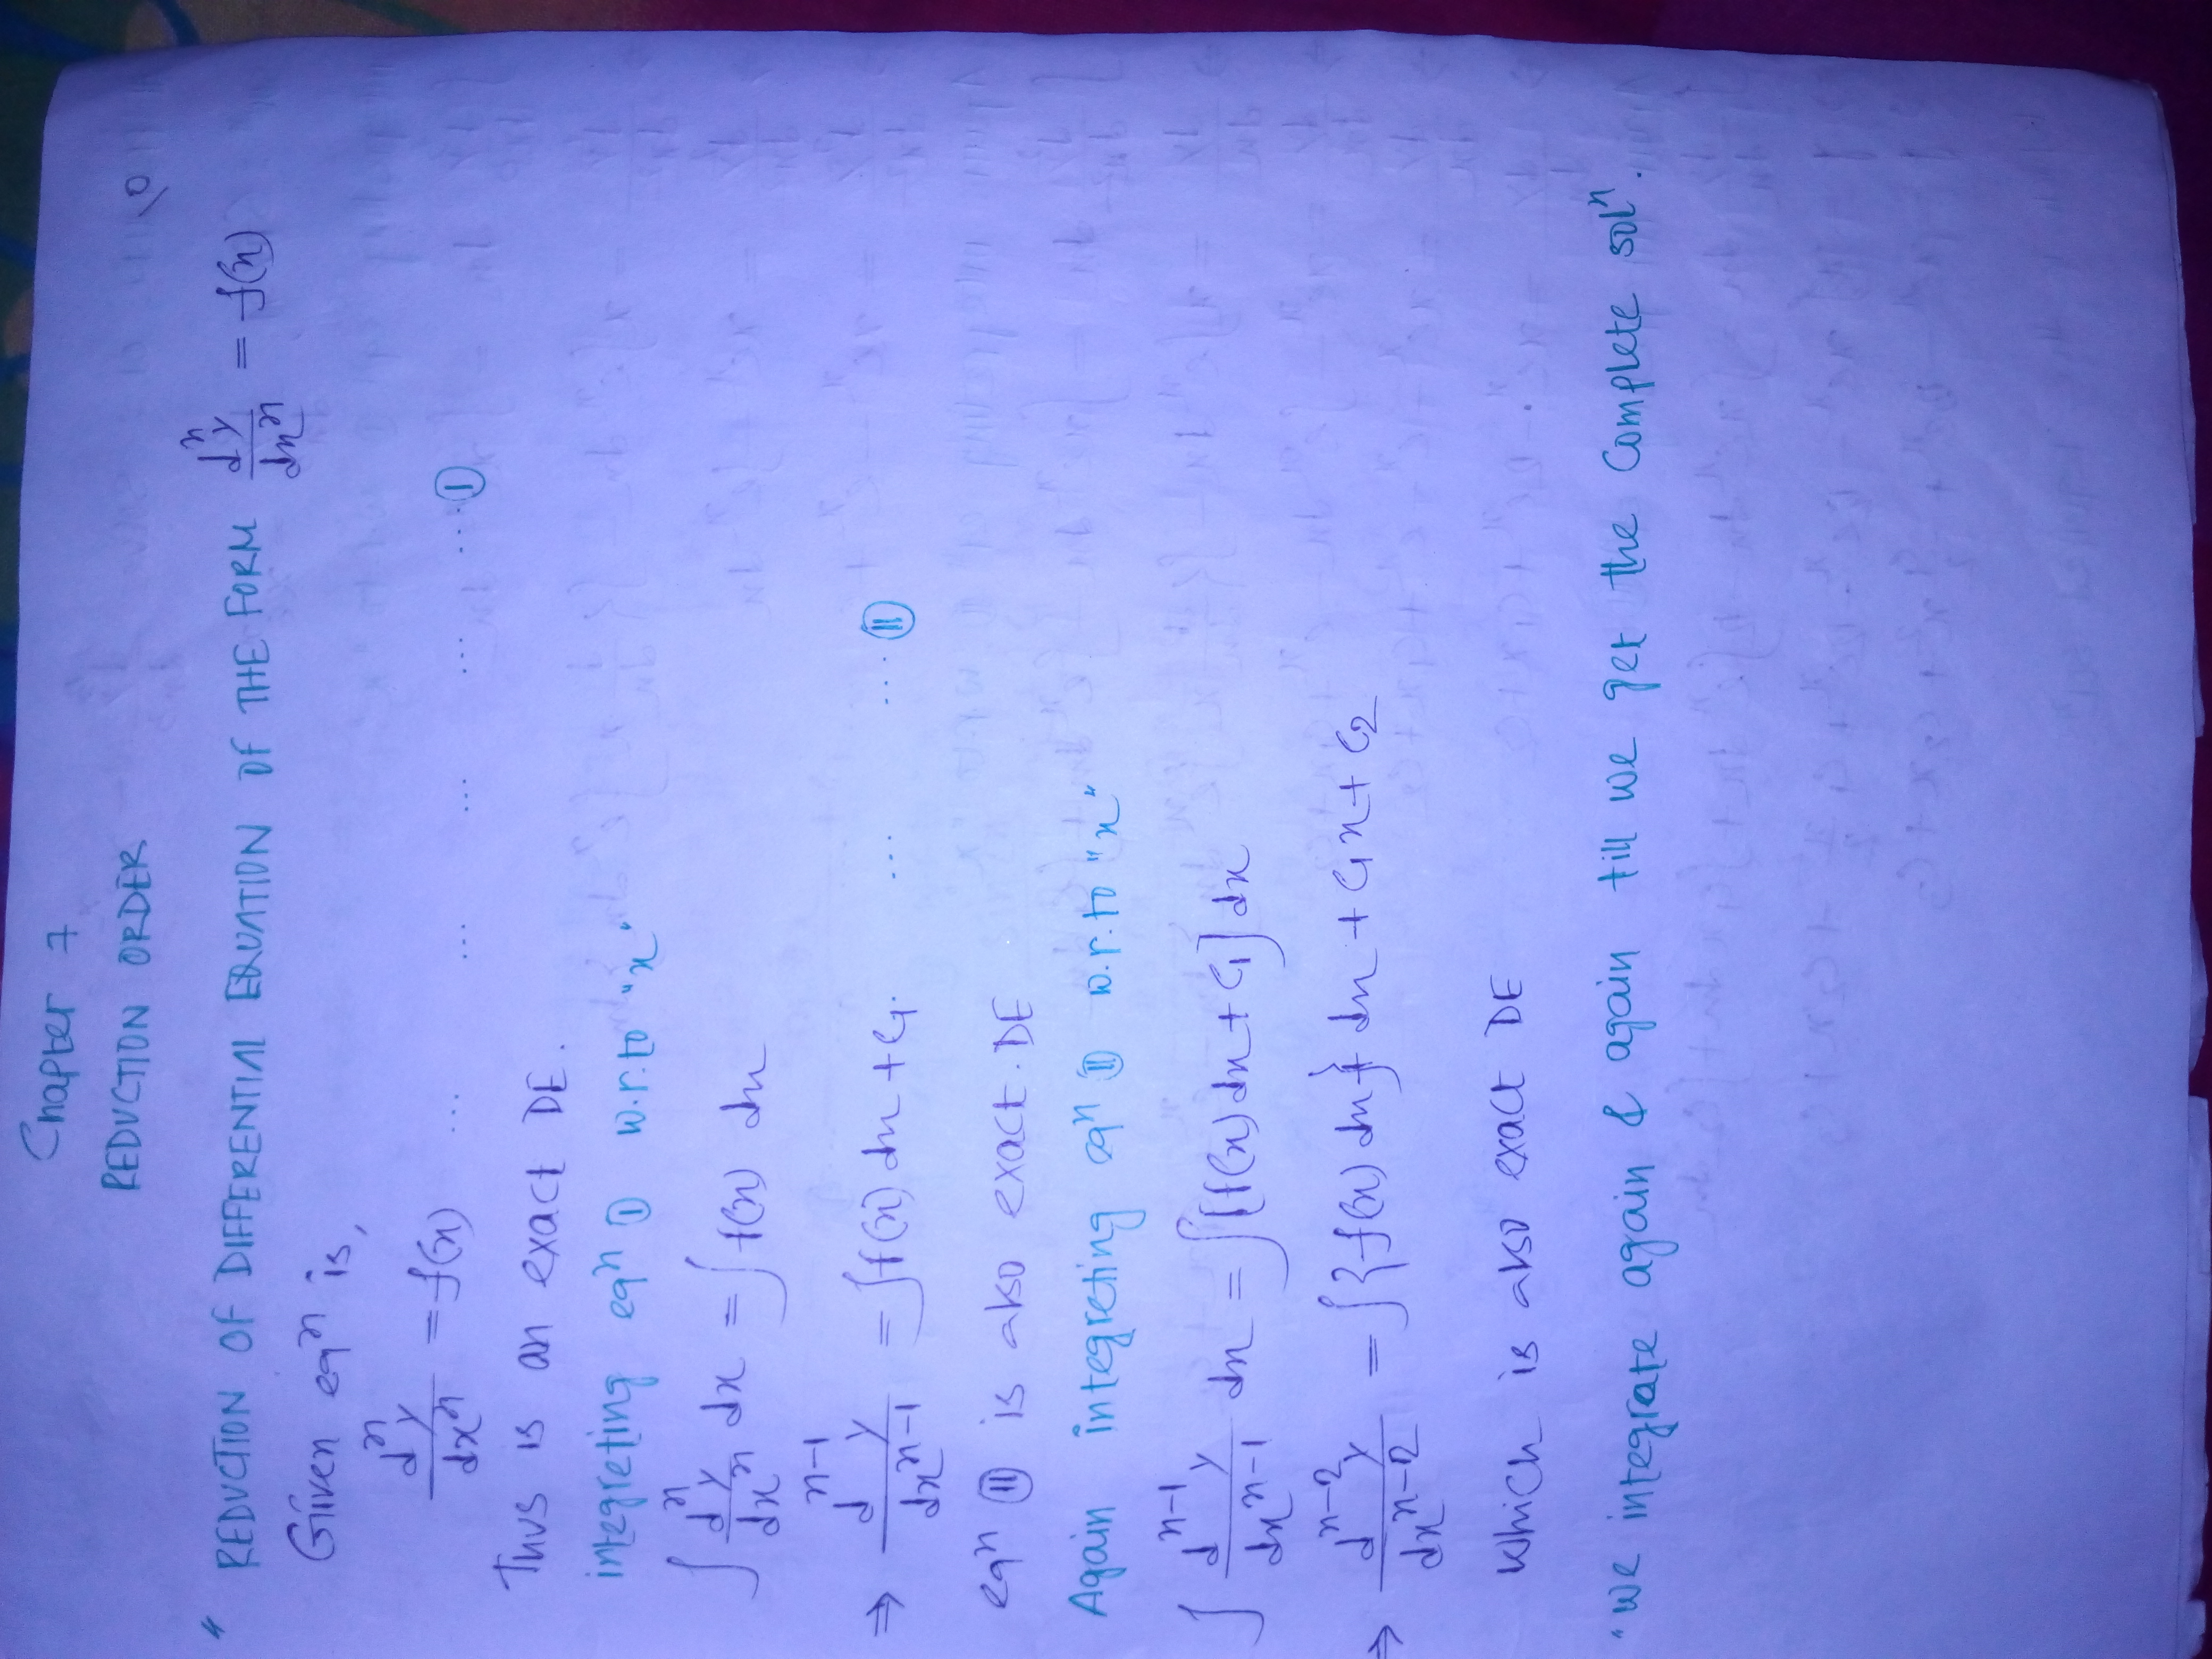 Chapter 7
REDUCTION ORDER
" REDUCTION OF DIFFERENTIAL EQUATION OF THE FORM dⁿy/dxⁿ = f(x)
Given eqⁿ is,
dⁿy/dxⁿ = f(x) ... ... ... ... ... Ⓘ
Thus is an exact DE.
integreting eqⁿ Ⓘ w.r.to "x"
∫ dⁿy/dxⁿ dx = ∫ f(x) dx
⇒ dⁿ⁻¹y/dxⁿ⁻¹ = ∫f(x) dx + C₁. ... ... Ⓘ︎Ⓘ
eqⁿ Ⓘ︎Ⓘ is also exact.DE
Again integreting eqⁿ Ⓘ︎Ⓘ w.r.to "x"
∫ dⁿ⁻¹y/dxⁿ⁻¹ dx = ∫[f(x) dx + C₁] dx
⇒ dⁿ⁻²y/dxⁿ⁻² = ∫{f(x) dx} dx + C₁x + C₂
Which is also exact DE
"we integrate again & again till we get the complete solⁿ."